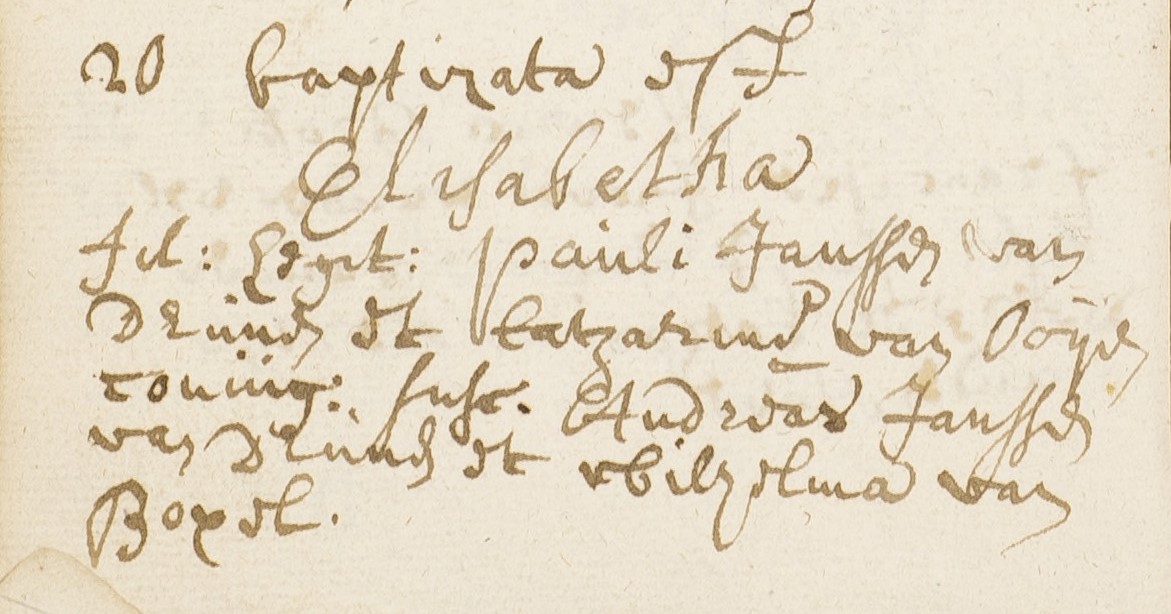 20 baptizata est
Elisabetha
fil: legit: pauli Janssen van
Drunen et Catharinae van Ooÿen
coniug: susc. Andreas Janssen
van Drunen et wilhelma van
Boxel.